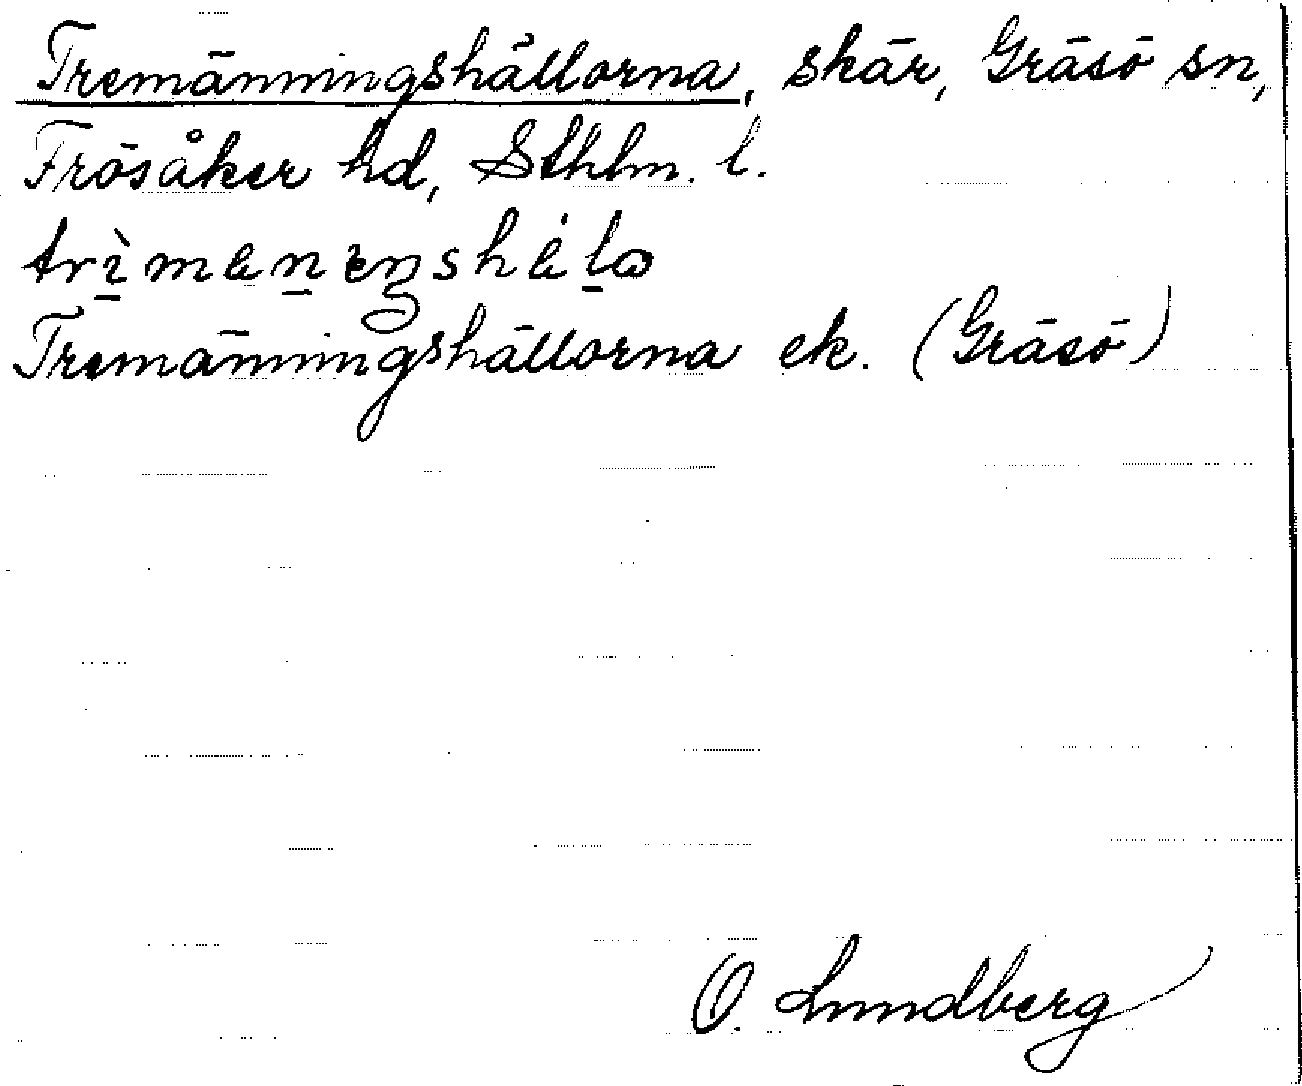 Tremänningshällorna, skär, Gräsö sn,
Frösåker hd, Sthlm. l.
trìmenıŋshálω
Tremänningshällorna ek. (Gräsö)
O. Lundberg